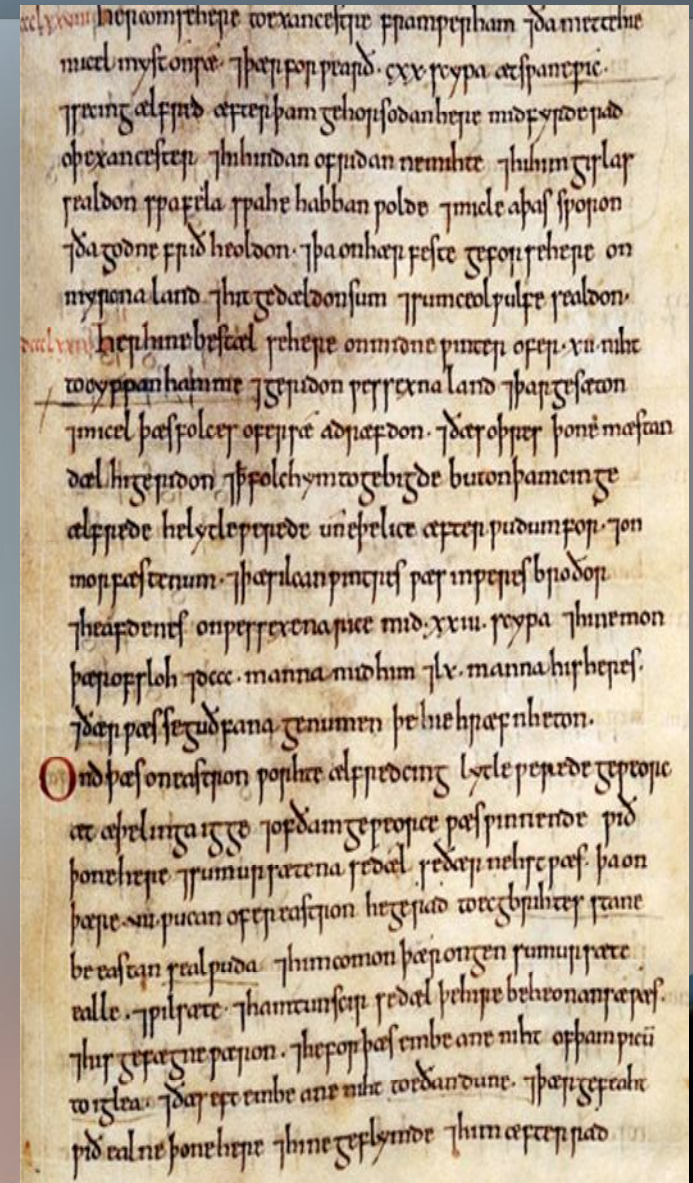 dccclxxviii Her com se here to exancestre fram ƿerham ⁊ða mette hie
micel myst on sæ· ⁊þær forƿearð· cxx· scypa æt sƿaneƿic·
⁊se cing ælfred æfter þam gehorsodan here mid fyrde rad
oþ exancester ⁊hi hindan ofridan ne mihte ⁊hi him gislas
sealdon sƿa fela sƿa he habban ƿolde ⁊micle aþas sƿoron
⁊ða godne frið heoldon· ⁊þa on hærfeste gefor se here on
myrcna land ⁊hit gedældon sum ⁊sum ceolƿulfe sealdon·
Her hine bestæl se here on midne ƿinter ofer· xii· niht
to cyppanhamme ⁊geridon ƿessexna land ⁊þar gesæton
⁊micel þæs folces ofer sæ adræfdon· ⁊ðæs oþres þone mæstan
dæl hi geridon ⁊þ folc hym to gebigde buton þam cinge
ælfrede he lytle ƿerede uneþelice æfter ƿudum for· ⁊on
morfæstenum· ⁊þæs ilcan ƿintres ƿæs inƿeres broðor
⁊healfdenes on ƿessexena rice mid· xxiii· scypa ⁊hine mon
þær ofsloh ⁊dccc· manna mid him ⁊lx· manna his heres·
⁊ðær ƿæs se guðfana genumen þe hie hræfn heton·
Ond þæs on eastron ƿorhte ælfred cing lytle ƿerede geƿeorc
æt æþelinga igge ⁊of ðam geƿeorce ƿæs ƿinnende ƿið
þone here ⁊sumursætena se dæl se ðær nehst ƿæs· þa on
þære· vii· ƿucan ofer eastron he gerad to ecgbrihtes stane
be eastan sealƿuda ⁊him comon þær ongen sumursæte
ealle· ⁊ƿilsæte· ⁊hamtunscir se dæl þe hire beheonan sæ ƿæs·
⁊his gefægne ƿæron· ⁊he for þæs embe ane niht of þam ƿicū
to iglea· ⁊ðæs eft embe ane niht to eðandune· ⁊þær gefeaht
ƿið ealne þone here ⁊hine geflymde ⁊him æfter rad